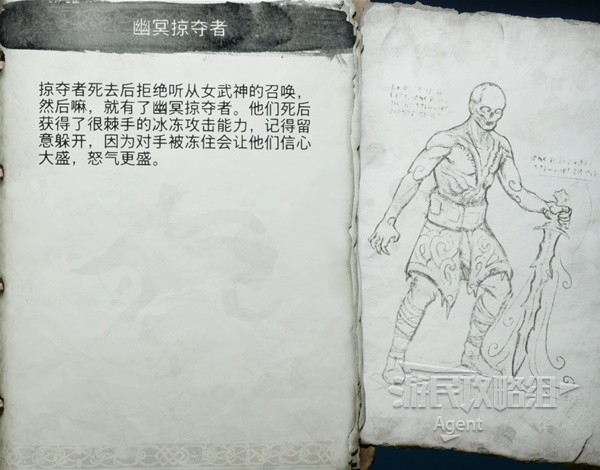 幽冥掠夺者
掠夺者死去后拒绝听从女武神的召唤，
然后嘛，就有了幽冥掠夺者。他们死后
获得了很棘手的冰冻攻击能力，记得留
意躲开，因为对手被冻住会让他们信心
大盛，怒气更盛。
游民攻略组
Agent